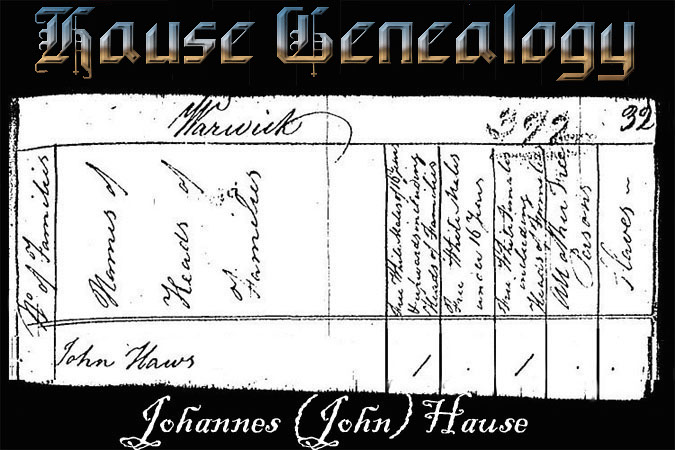 Hause Genealogy
Warwick
322
32
No. of Families
Names of
Heads of
Families
Free White Males of 16 years
& upwards including
Heads of Families
Free White Males
under 16 years
Free White Females
including
Heads of Families
All other Free
Persons
Slaves
John Haws 1 . 1 . .
Johannes (John) Hause